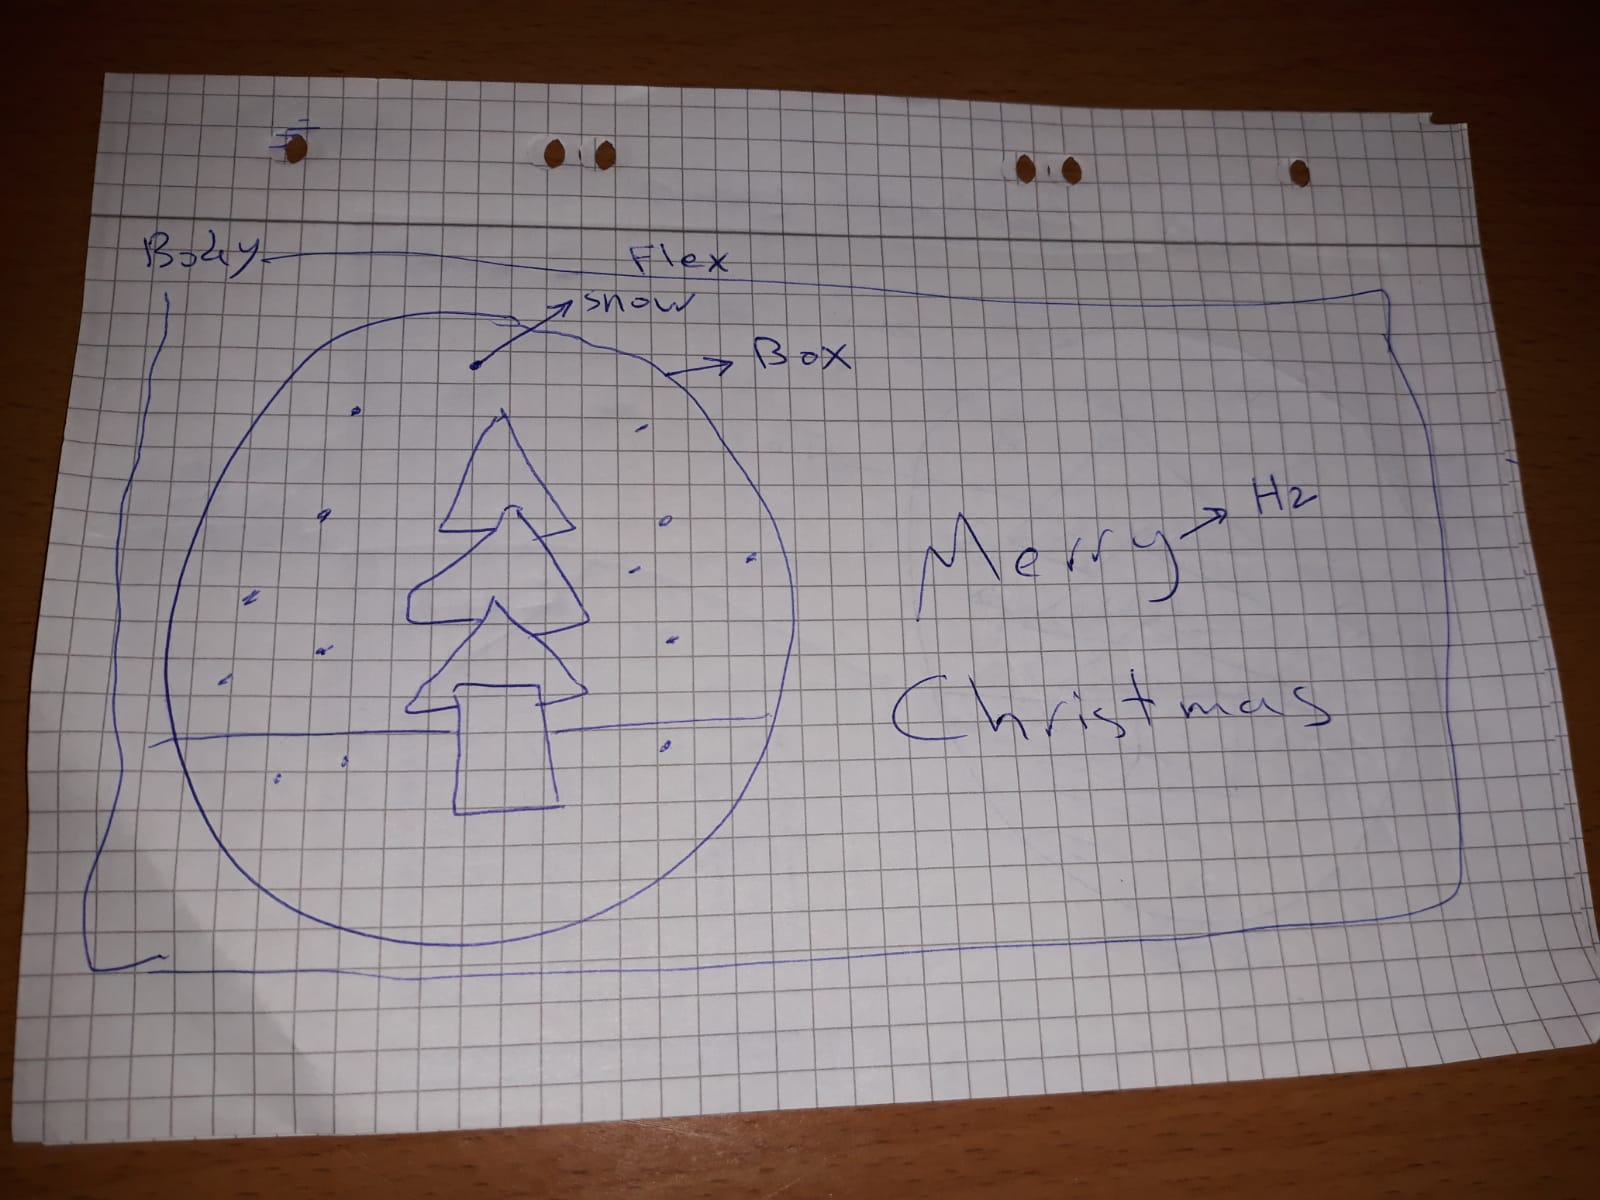 Body
Flex
snow
Box
H2
Merry
Christmas